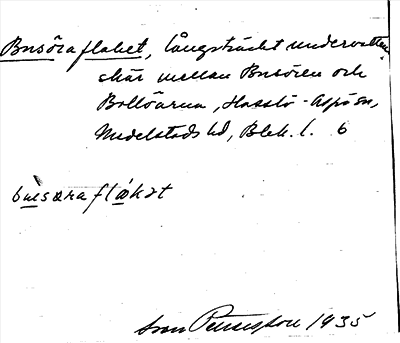 Busöraflaket, långsträckt undervattens-
skär mellan Busören och
Bollöarna, Hasslö-Aspö sn,
Medelstads hd, Blek. l. 6
busøraflakət
Sven Petersson 1935